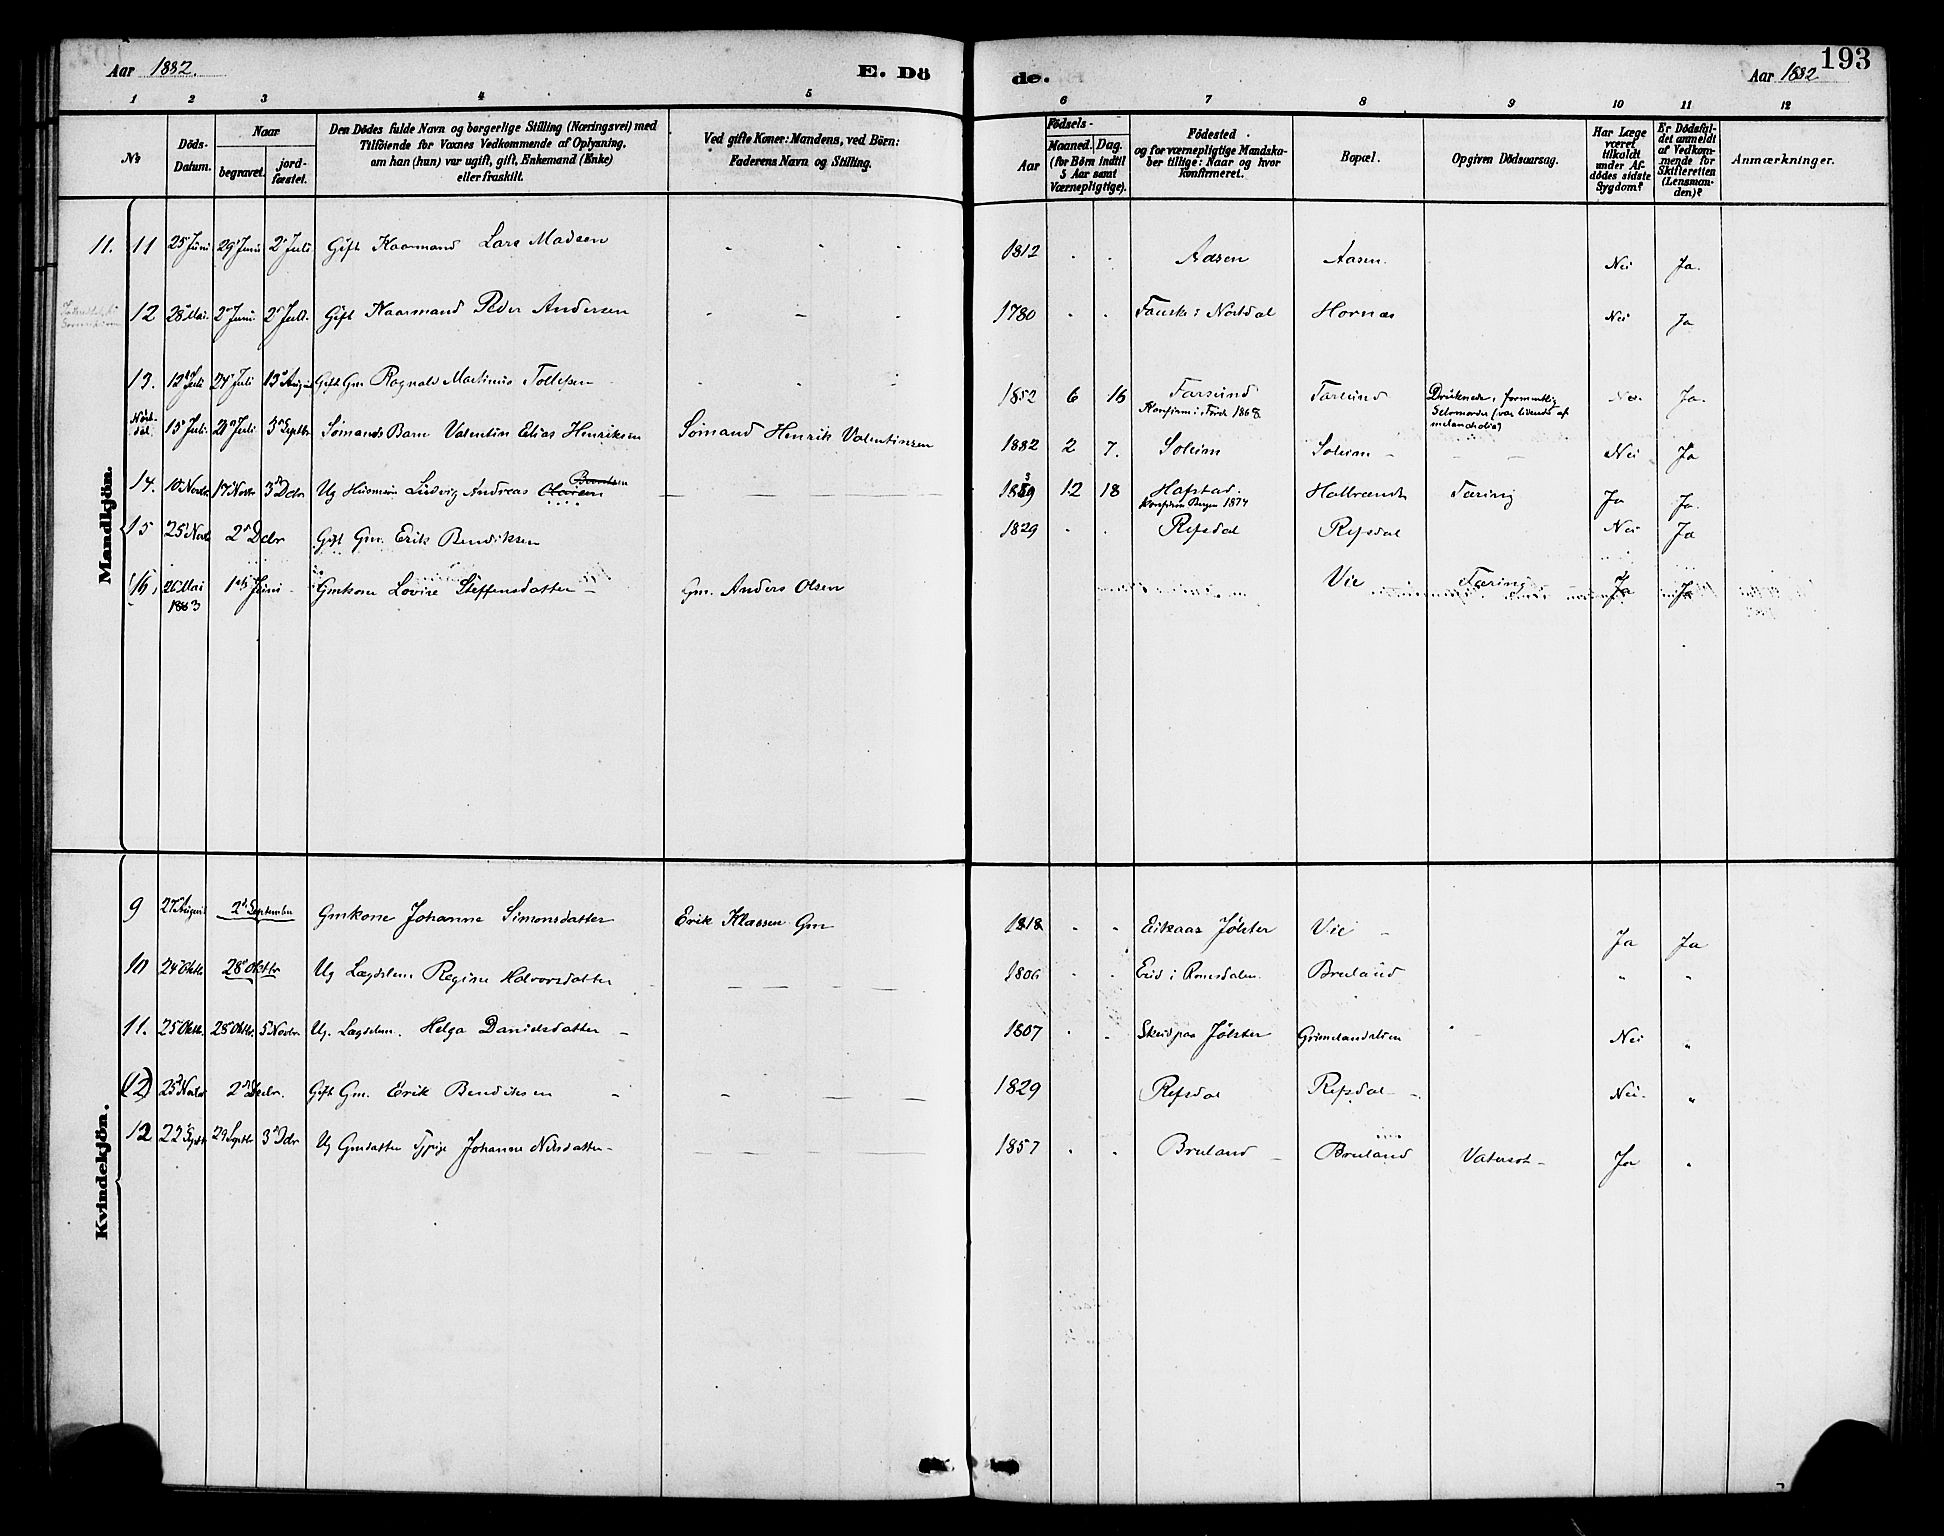 Aar 1882. E. Dö de. Aar 1882 193
1 2 3 4 5 6 7 8 9 10 11 12
No
Döds-Datum.
Naar
begravet. jord-fæstet.
Den Dödes fulde Navn og borgerlige Stilling (Næringsvei) med
Tilföiende for Voxnes Vedkommende af Oplysning,
om han (hun) var ugift, gift, Enkemand (Enke)
eller fraskilt.
Ved gifte Koner: Mandens, ved Börn:
Faderens Navn og Stilling.
Födsels-
Aar Maaned. Dag.
(for Börn indtil
5 Aar samt
Værnepligtige).
Födested
og for værnepligtige Mandska-
ber tillige: Naar og hvor
konfirmeret.
Bopæl.
Opgiven Dödsaarsag.
Har Læge
været
tilkaldt
under Af-
dödes sidste
Sygdom?
Er Dödsfal-
det anmeldt
af Vedkom-
mende for
Skifteretten
(Lensman-
den)?
Anmærkninger.
Mandkjön.
11. 11 25 Juni 29 Juni 2 Juli Gift Kaarmand Lars Madsen 1812 Aasen Aasen. Nei Ja.
12 28 Mai 2 Juni 2 Juli Gift Kaarmand Peder Andersen 1780 Hornæs Nei Ja
13. 12 Juli 24 Juli 13 August Gift Gm Ragnald Martinus Tollefsen 1852 6 16 Farsund Farsund Druknede, formentlig
Konfirm i Förde 1868 Selvmorder (var lidende af
melancholia) Nei Ja.
Nörddal 15 Juli 20 Juli 3 Septbr Sömands Barn Valentin Elias Henriksen Sömand Henrik Valentinsen 1882 2 7. Soleim Soleim Nei Ja
14. 10 Novbr 17 Novbr 3 Dcbr Ug Husmen Ludvig Andreas Olaisen 1859 12 18 Hafstad. Tæring Ja Ja.
Konfirm Bergen 1874
15 25 Novbr 2 Dcbr Gift Gm. Erik Bendiksen 1829 Refsdal Refsdal Nei Ja
16, 26 Mai 1ste Juni Gmkone Lovise Steffensdatter Gm. Anders Olsen Vie Tæring Ja Ja
1883
Kvindekjön.
9 27 August 2 September Gmkone Johanne Simonsdatter Erik Klaesen Gm 1818 Eikaas Jölster Vie Ja Ja
10 24 Oktbr 28 Oktbr Ug Lægdslem Regine Halvorsdatter 1806 Eid i Romsdalen Bruland " "
11. 25 Oktbr. 28 Oktbr. 5 Novbr Ug. Lægdslem. Helga Danielsdatter 1807 Jölster Grimelandslien Nei "
(12) 25 Novbr 2 Decbr. Gift Gm. Erik Bendiksen 1829 Refsdal Refsdal Nei. "
12 22 Septbr 29 Septbr 3 Dcbr Ug Gmdatter Johanne Nilsdatter 1857 Bruland Bruland Vatersot Ja "